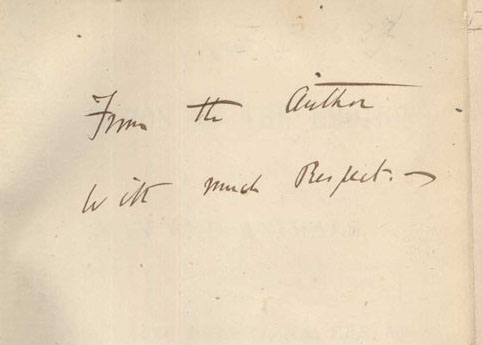 From the Author
With much Respect. —